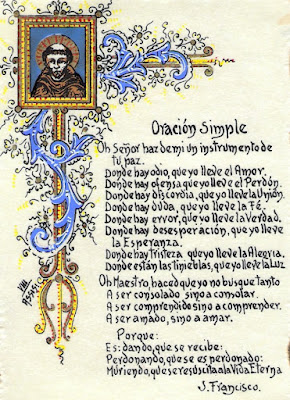 Oración Simple
Oh Señor haz de mi un instrumento de
tu paz.
Donde hay odio, que yo lleve el Amor.
Donde hay ofensa que yo lleve el Perdón.
Donde hay discordia, que yo lleve la Unión.
Donde hay duda, que yo lleve la Fé.
Donde hay error, que yo lleve la Verdad.
Donde hay desesperación, que yo lleve
la Esperanza.
Donde hay Tristeza que yo lleve la Alegria.
Donde están las tinieblas, que yo lleve la Luz
Oh Maestro, haced que yo no busque tanto
A ser consolado sino a consolar.
A ser comprendido sino a comprender.
A ser amado, sino a amar.
Porque:
Es: dando, que se recibe:
Perdonando, que se es perdonado:
Muriendo, que se resucita a la Vida Eterna
S. Francisco.